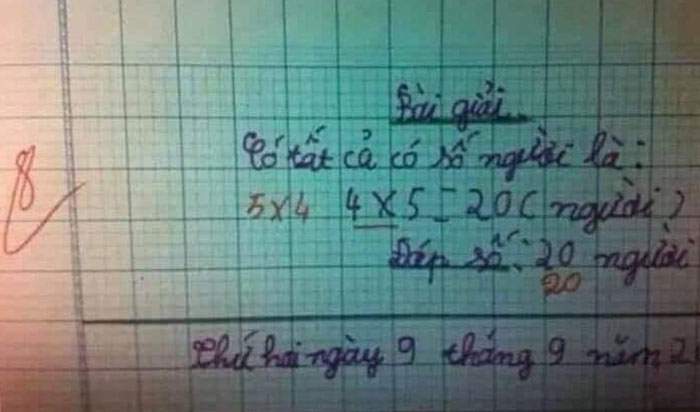 Bài giải
Có tất cả có số người là:
8
5x4 4 x 5 = 20 ( người )
Đáp số: 20 người
20
Thứ hai ngày 9 tháng 9 năm 2